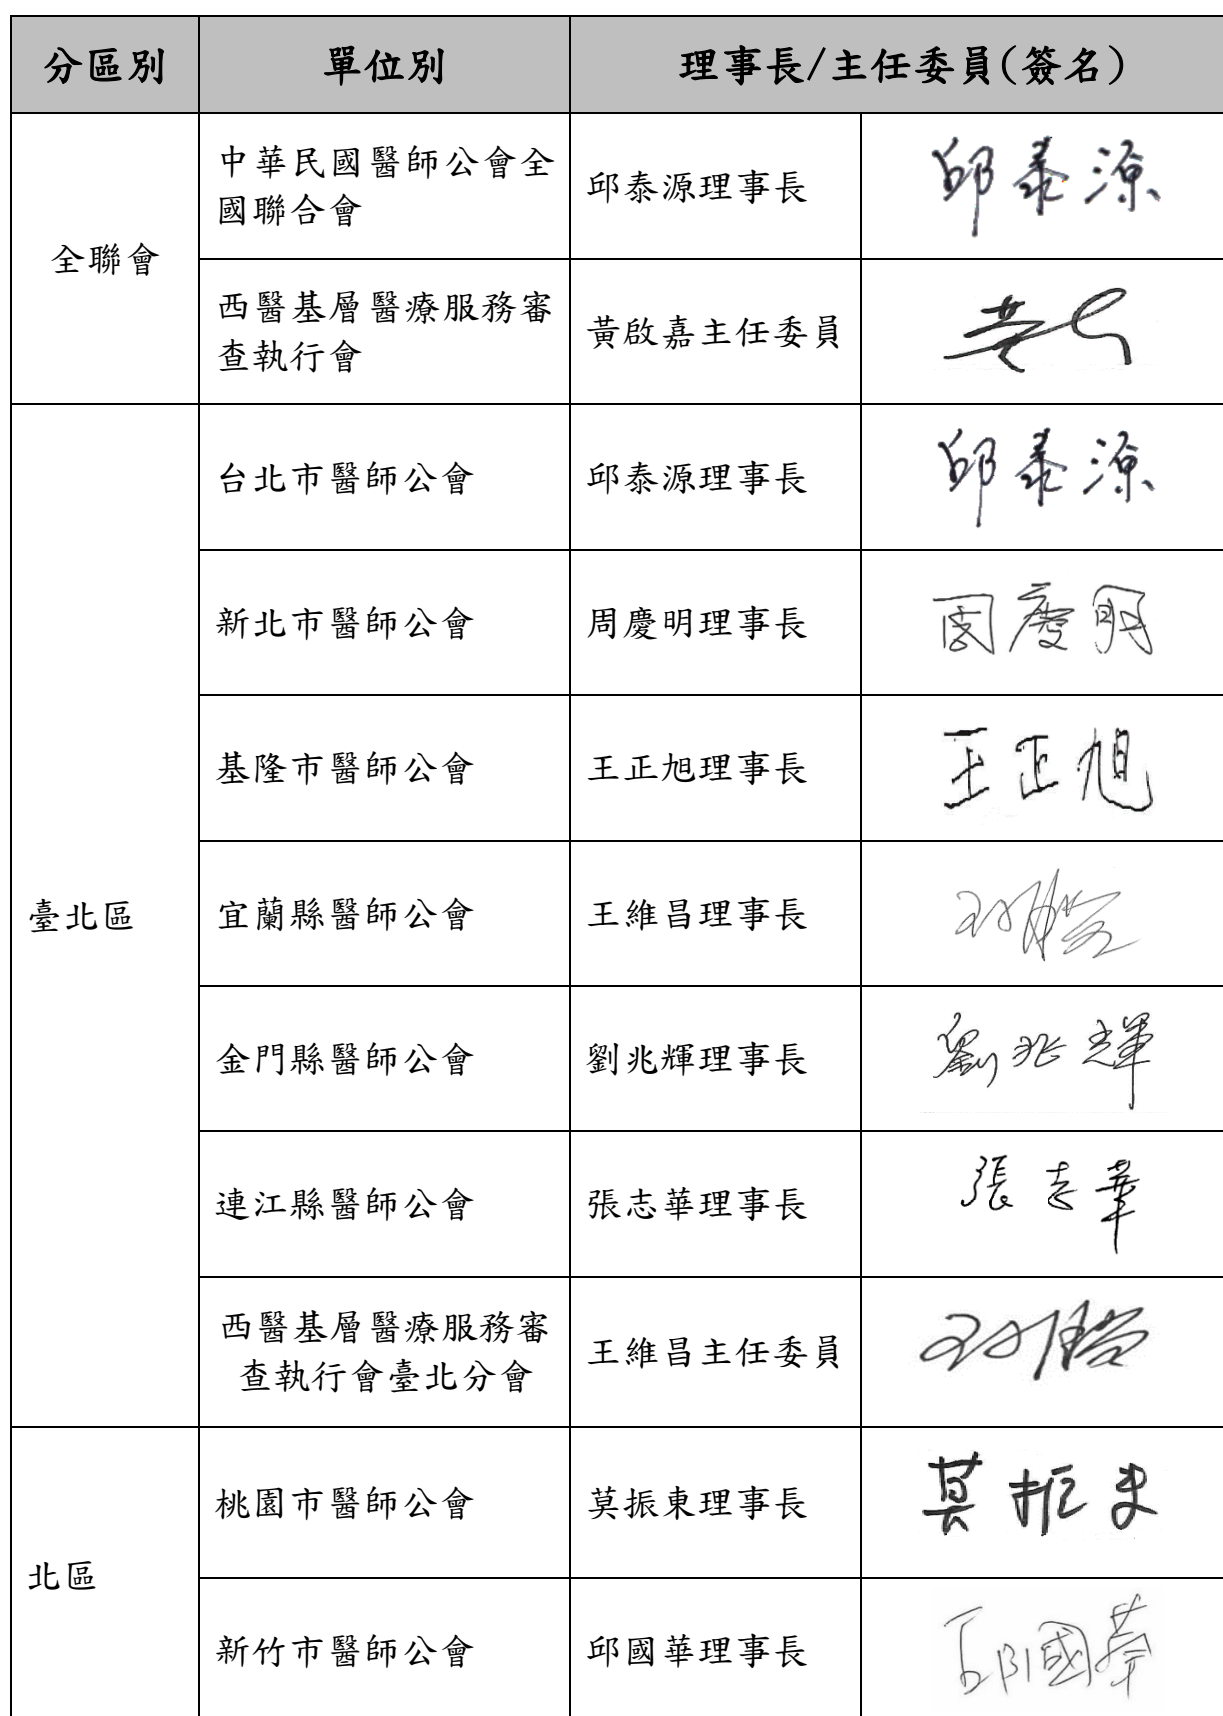 分區別 單位別 理事長/主任委員(簽名)
全聯會
中華民國醫師公會全
國聯合會
邱泰源理事長 邱泰源
西醫基層醫療服務審
查執行會
黃啟嘉主任委員
臺北區
台北市醫師公會 邱泰源理事長 邱泰源
新北市醫師公會 周慶明理事長 周慶明
基隆市醫師公會 王正旭理事長 王正旭
宜蘭縣醫師公會 王維昌理事長
金門縣醫師公會 劉兆輝理事長 劉兆輝
連江縣醫師公會 張志華理事長 張志華
西醫基層醫療服務審
查執行會臺北分會
王維昌主任委員
北區
桃園市醫師公會 莫振東理事長 莫振東
新竹市醫師公會 邱國華理事長 邱國華